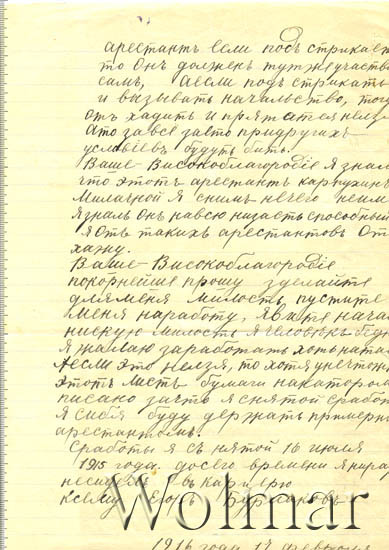 арестантъ если подъстрикает
то онъ должен тутже участво
самъ, а если подъстрикать
и вызывать начальство, то
отхадить и прятатся нельз
Ато за все за это придругихъ
условіевъ будутъ бить.
Ваше Високоблагородіе я знал
что этотъ арестантъ карпухинъ
Я снимъ нечего неим
язналъ онъ навсю низасть способный
я отъ такихъ арестантовъ от
хажу.
Ваше Високоблагородіе
покорнейше прошу зделайте
для меня милость, пустите
меня наработу, явите нача
нискую милость я человѣкъ бѣд
Я жалаю заработать хоть натаб
Аесли это нелзя, то хотя унечтож
этотъ листъ бумаги накаторомъ
писано зачто я снятой сработ
я сибя буду держать примерн
арестантомъ.
Сработы я снятой 16 июля
1915 года, досего времени я
несидел въ карцерю
Ксему Егоръ
Wolmar
1916 года 17 февраля